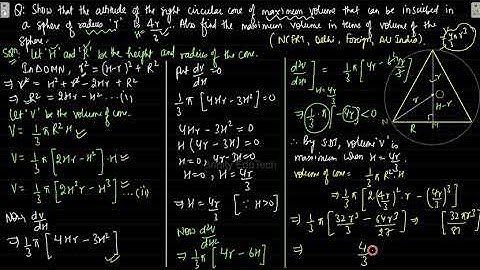 Q: Show that the altitude of the right circular cone of maximum volume that can be inscribed in
a sphere of radius 'r' is 4r/3. Also find the maximum volume in terms of volume of the
sphere. (NCERT, Delhi, Foreign, All India).
Soln. Let 'H' and 'R' be the height and radius of the cone.
In ΔOMN, r² = (H-r)² + R²
⇒ r² = H² + r² - 2Hr + R²
⇒ R² = 2Hr - H² ...(i)
Let 'V' be the volume of cone.
V = 1/3 π R² H
V = 1/3 π [2Hr - H²] · H
V = 1/3 π [2H²r - H³] ...(ii)
Now dV/dH
⇒ 1/3 π [4Hr - 3H²]
put dV/dH = 0
1/3 π [4Hr - 3H²] = 0
4Hr - 3H² = 0
H (4r - 3H) = 0
H = 0, 4r - 3H = 0
H = 0, H = 4r/3
⇒ H = 4r/3 [∵ H > 0]
Now d²V/dH²
⇒ 1/3 π [4r - 6H]
H = 4r/3
⇒ 1/3 π [-4r] < 0
∴ By SDT, volume 'V' is
maximum when H = 4r/3.
Volume of cone = 1/3 π R² H
⇒ 1/3 π [2(4r/3)² · r - (4r/3)³]
⇒ 1/3 π [32r³/9 - 64r³/27] ⇒ [32πr³/81]
⇒ 4/3
r
r
O
H-r
R
M